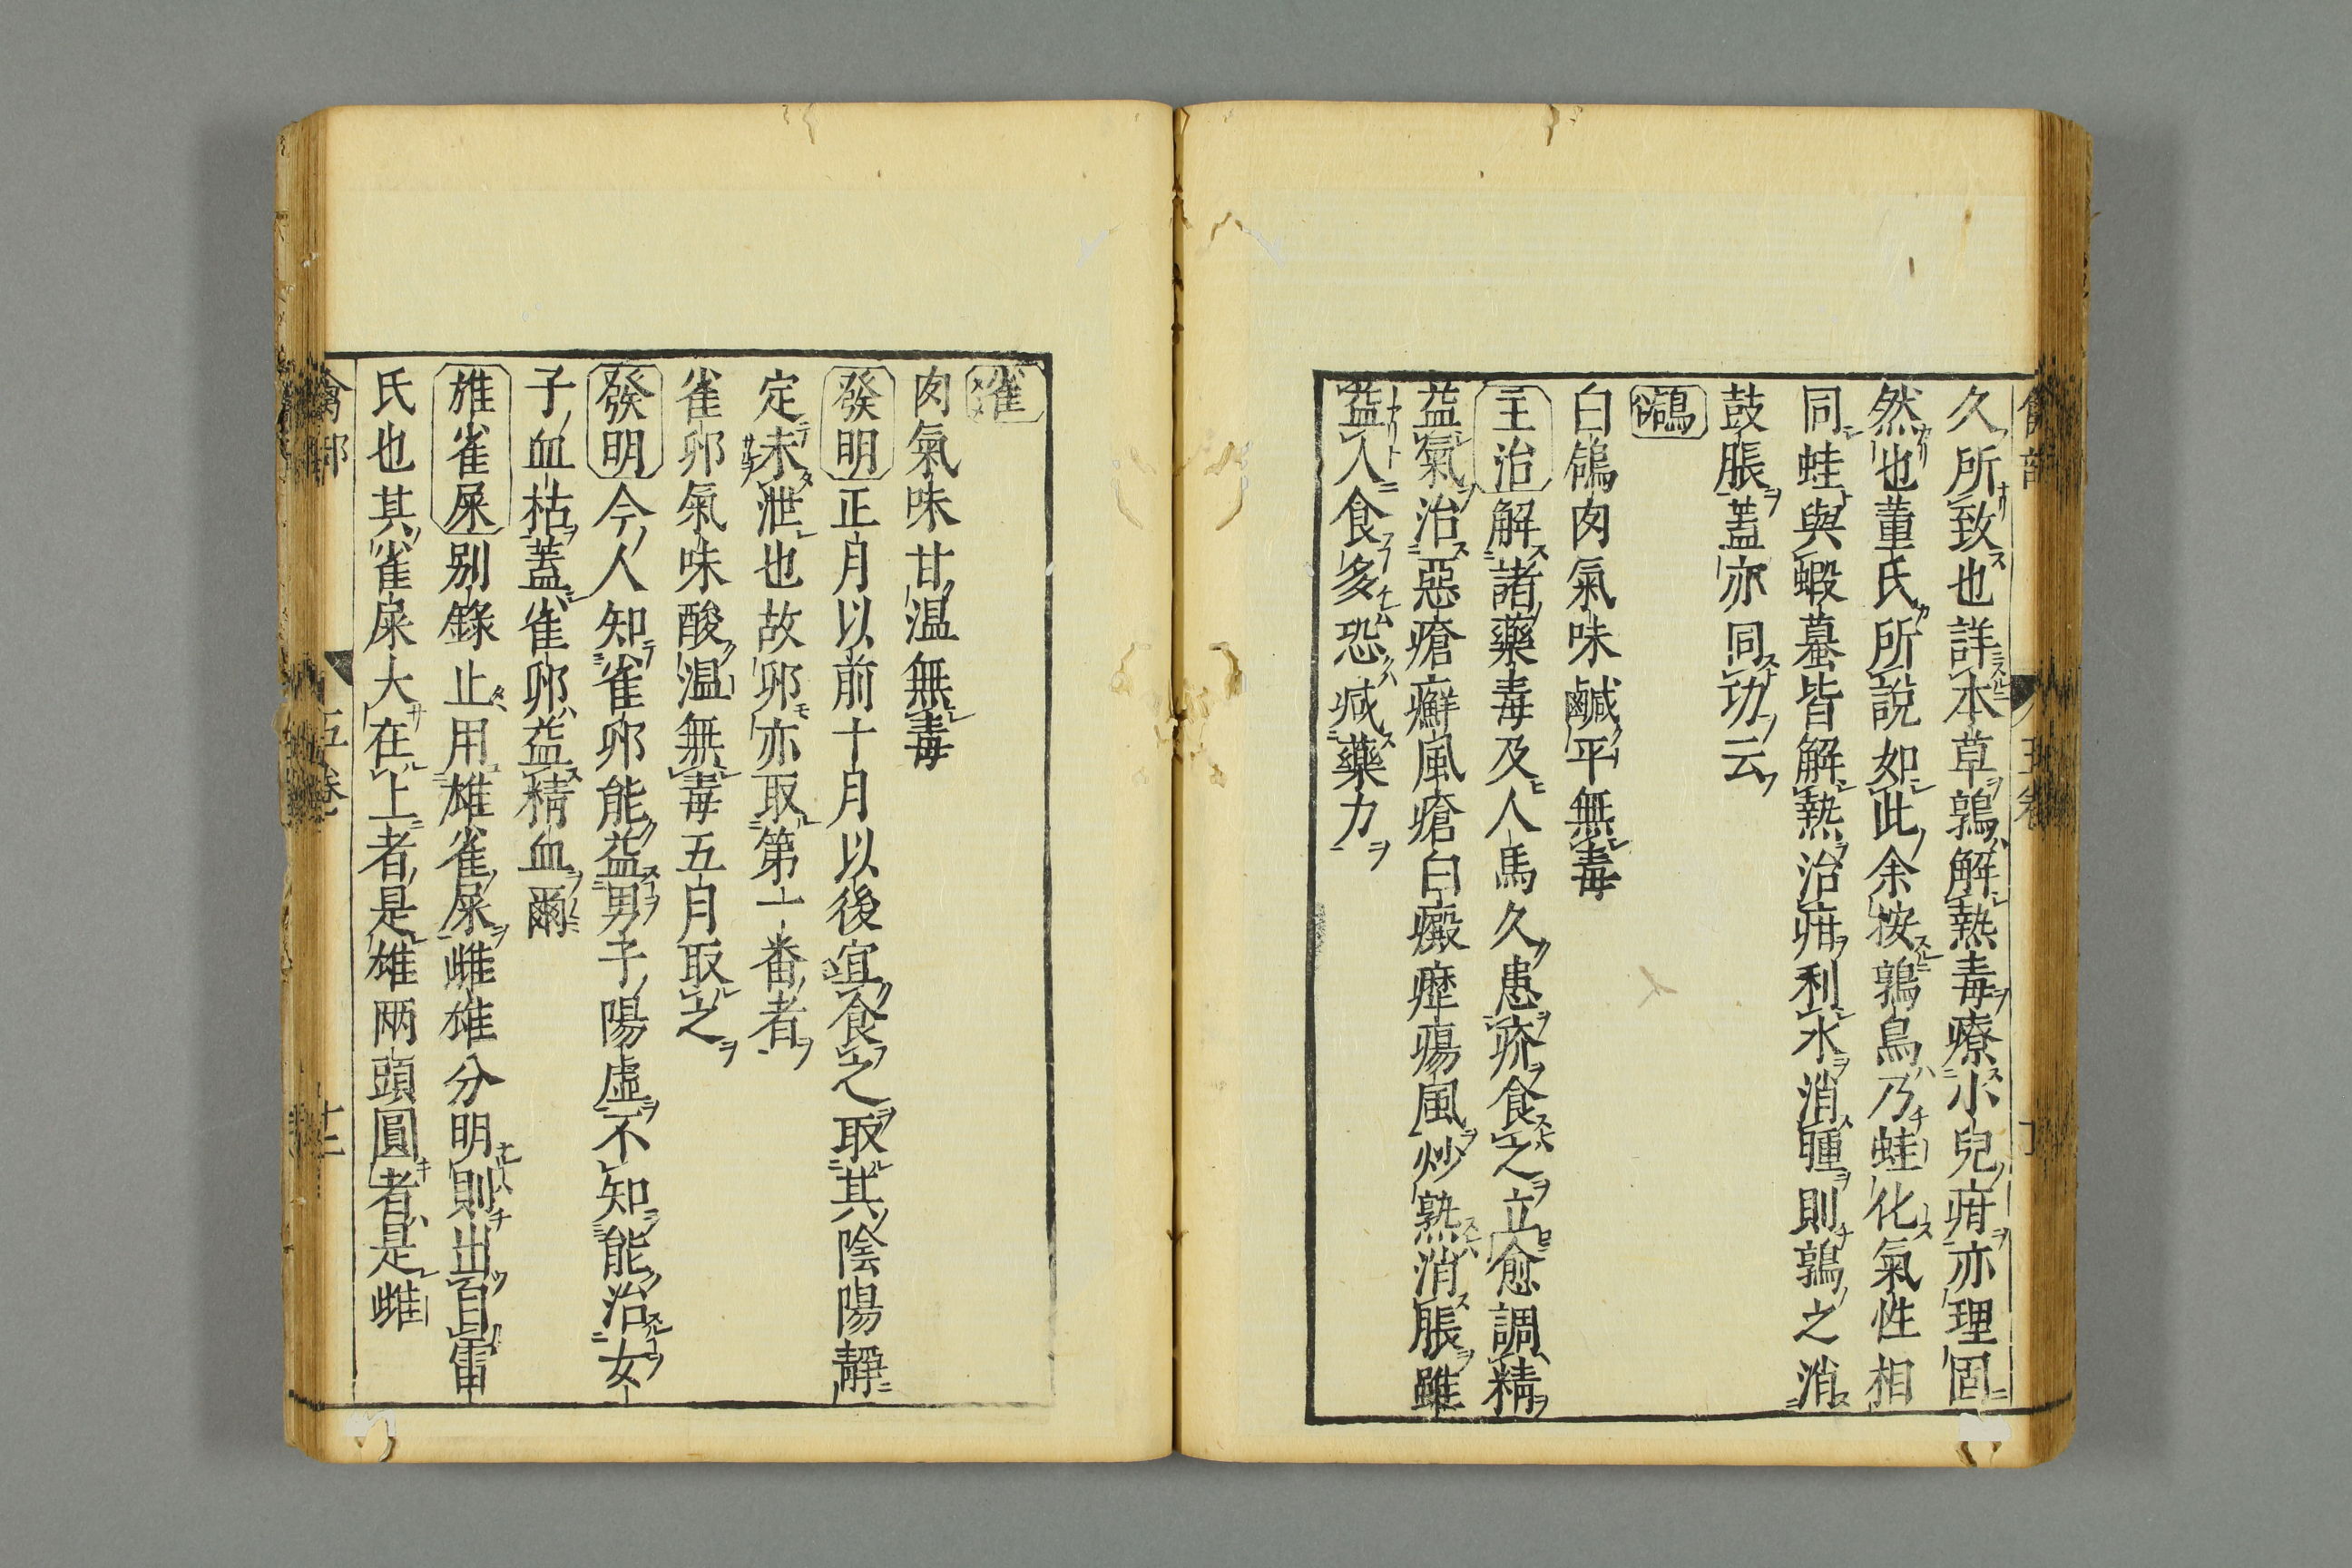 久所致也詳本草鶉解熱毒療小兒疳亦理固
然也董氏所說如此余按鶉鳥乃蛙化氣性相
同蛙與蝦蟇皆解熱治疳利水消腫則鶉之消
鼓脹蓋亦同功云
鴿
白鴿肉氣味鹹平無毒
主治解諸藥毒及人馬久患疥食之立愈調精
益氣治惡瘡癬風瘡白癜癧瘍風炒熟消脹雖
益人食多恐减藥力
雀
肉氣味甘温無毒
發明正月以前十月以後宜食之取其陰陽靜
定未泄也故卵亦取第一番者
雀卵氣味酸温無毒五月取之
發明今人知雀卵能益男子陽虛不知能治女
子血枯蓋雀卵益精血爾
雄雀屎别錄止用雄雀屎雌雄分明則出自雷
氏也其雀屎大在上者是雄兩頭圓者是雌
禽部 五卷